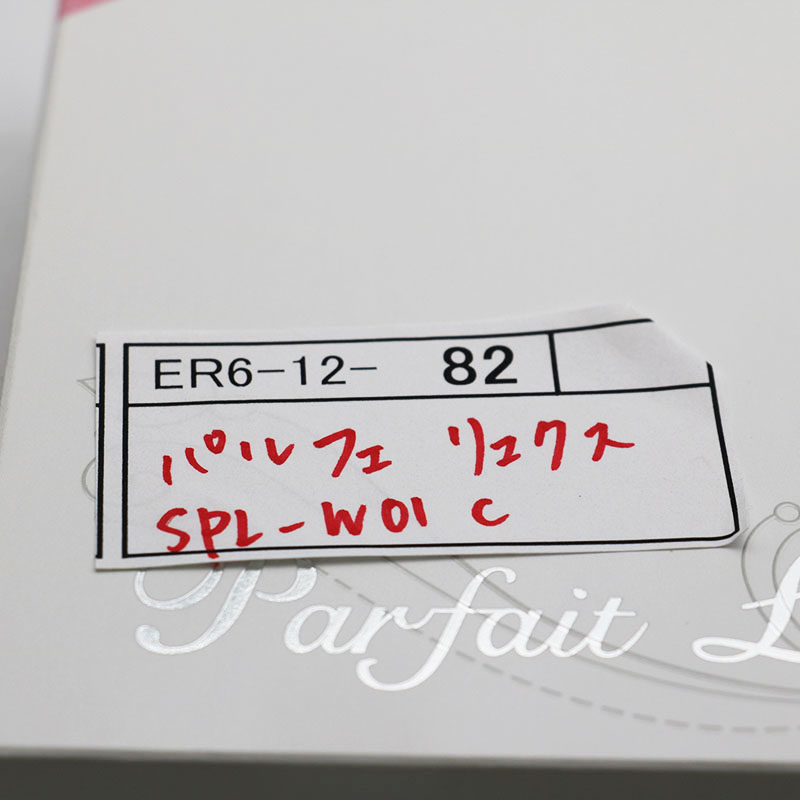 ER6-12- 82
パルフェ リュクス
SPL-W01 C
Parfait L